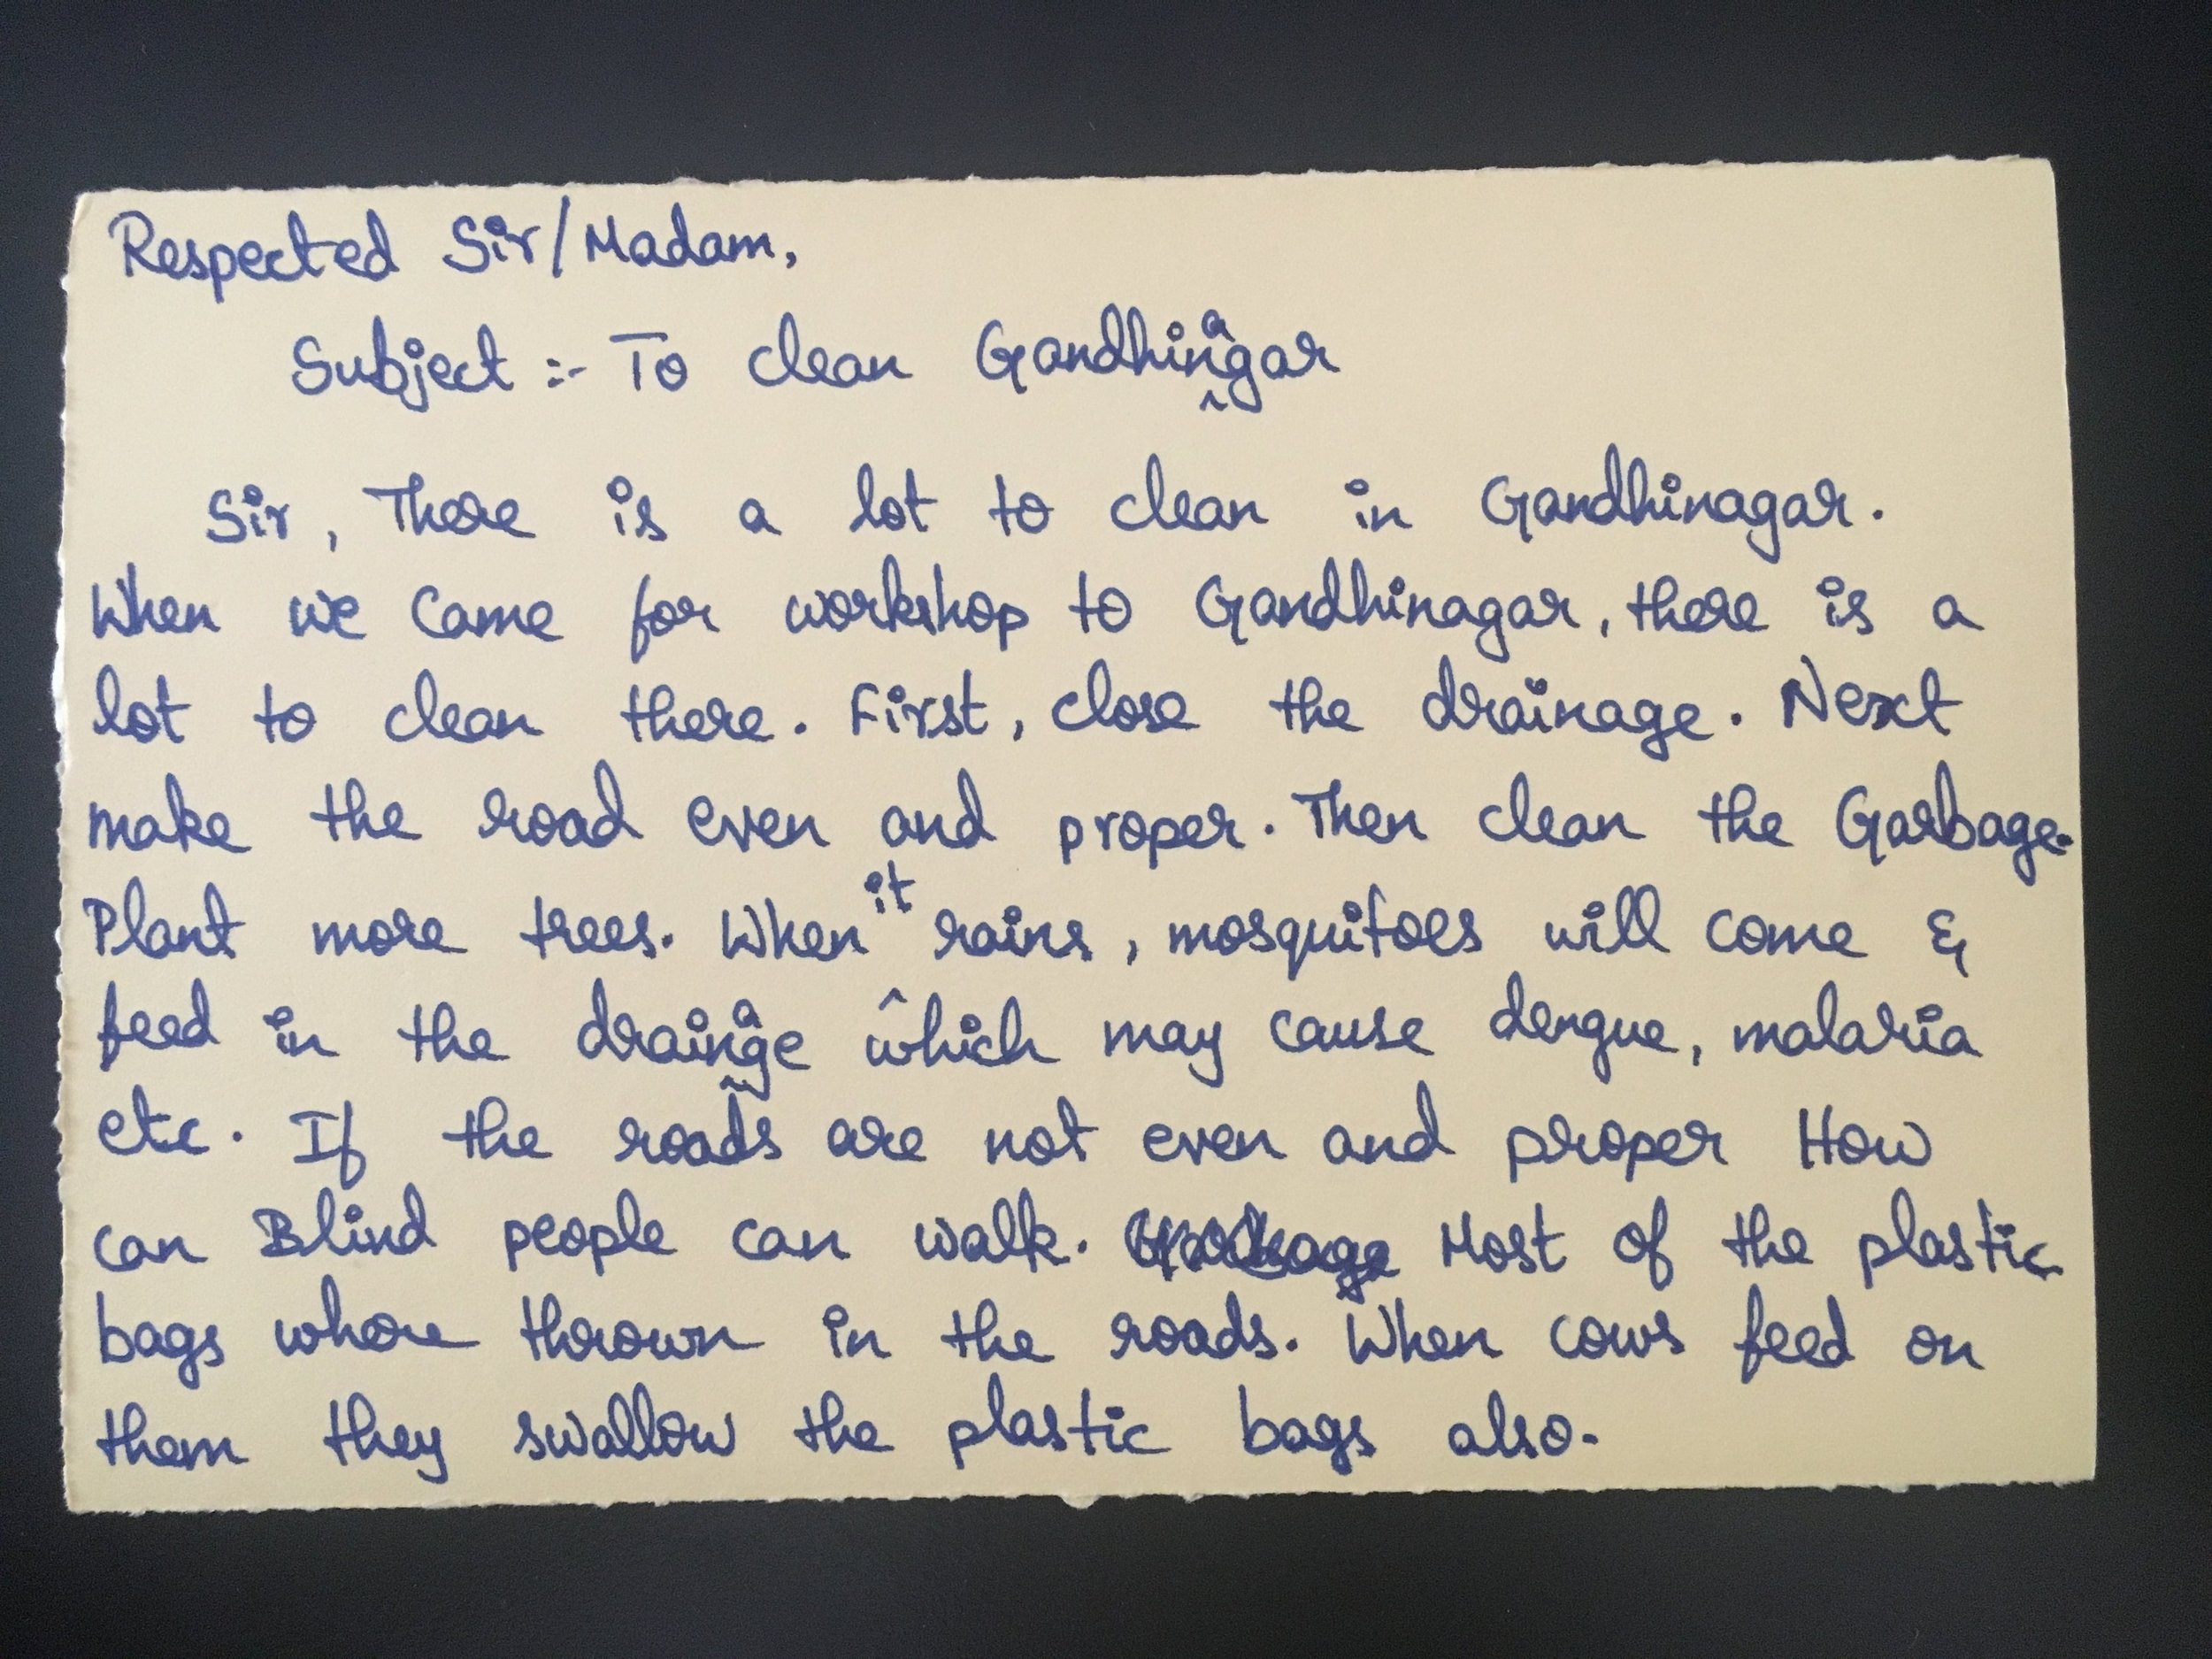 Respected Sir/Madam,
Subject :- To clean Gandhinagar
Sir, There is a lot to clean in Gandhinagar.
When we came for workshop to Gandhinagar, there is a
lot to clean there. First, close the drainage. Next
make the road even and proper. Then clean the Garbage.
Plant more trees. When it rains, mosquitoes will come &
feed in the drainage which may cause dengue, malaria
etc. If the roads are not even and proper How
can Blind people can walk. Most of the plastic
bags whore thrown in the roads. When cows feed on
them they swallow the plastic bags also.